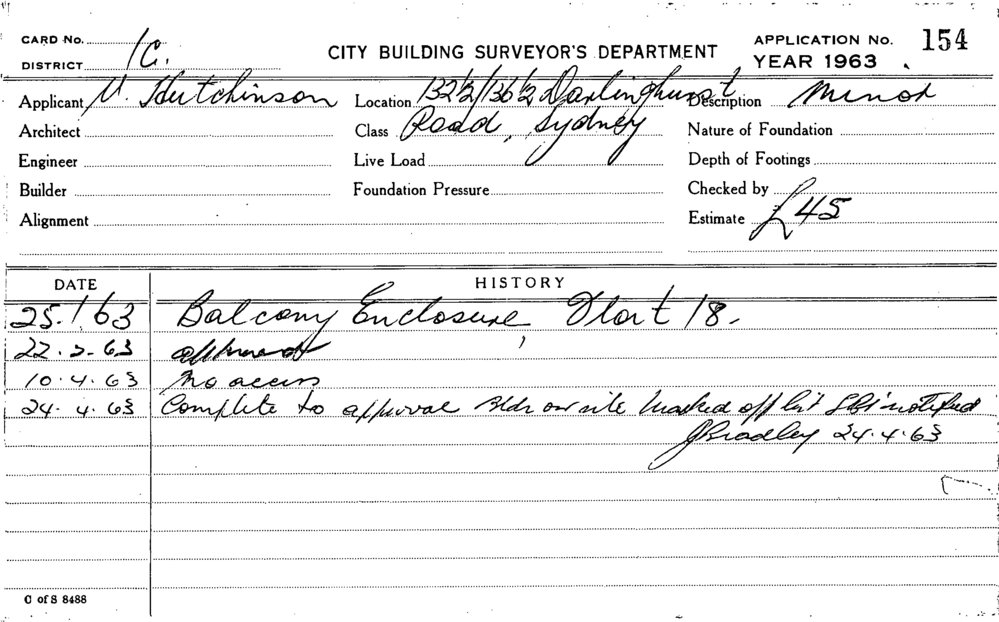 CARD No. 1C.
DISTRICT
CITY BUILDING SURVEYOR'S DEPARTMENT
APPLICATION No. 154
YEAR 1963
Applicant V. Hutchinson Location 132½/136½ Darlinghurst Description Minor
Architect Class Road, Sydney Nature of Foundation
Engineer Live Load Depth of Footings
Builder Foundation Pressure Checked by
Alignment Estimate £45
DATE HISTORY
25.1.63 Balcony Enclosure, Flat 18.
22.2.63 approved
10.4.63 No access
24.4.63 Complete to approval Bldr on site marked off list notified
JBradley 24.4.63
C of S 8488